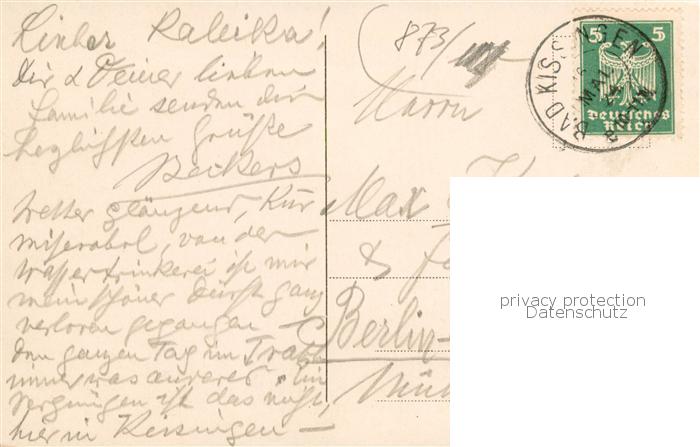 Lieber Kaleika!
Dir & Deiner lieben
Familie senden die
herzlichsten Grüße
Beckers
Wetter glänzend, Kur
miserabel, von der
Wassertrinkerei ist mir
mein schöner Durst ganz
verloren gegangen –
den ganzen Tag im Trab
immer was anderes. Ein
Vergnügen ist das nicht,
hier in Kissingen –
873/
Herrn
Max
&
Berlin-
BAD KISSINGEN
MAI
5 5
Deutsches
Reich
privacy protection
Datenschutz